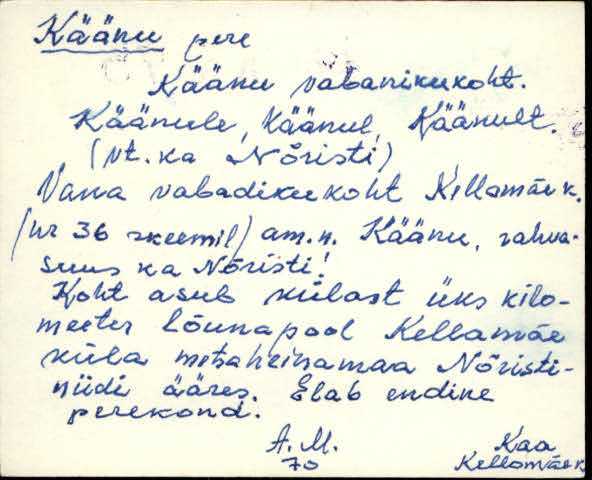 Käänu pere
Käänu vabanikukoht.
Käänule, Käänul, Käänult.
(vt. ka Nõristi)
Vana vabadikukoht Kellamäe k.
(nr 36 skeemil) am.n. Käänu, rahva-
suus ka Nõristi!
Koht asub külast üks kilo-
meeter lõunapool Kellamäe
küla metsaheinamaa Nõristi-
niidi ääres. Elab endine
perekond.
A. M.
70
Kaa
Kellamäe k